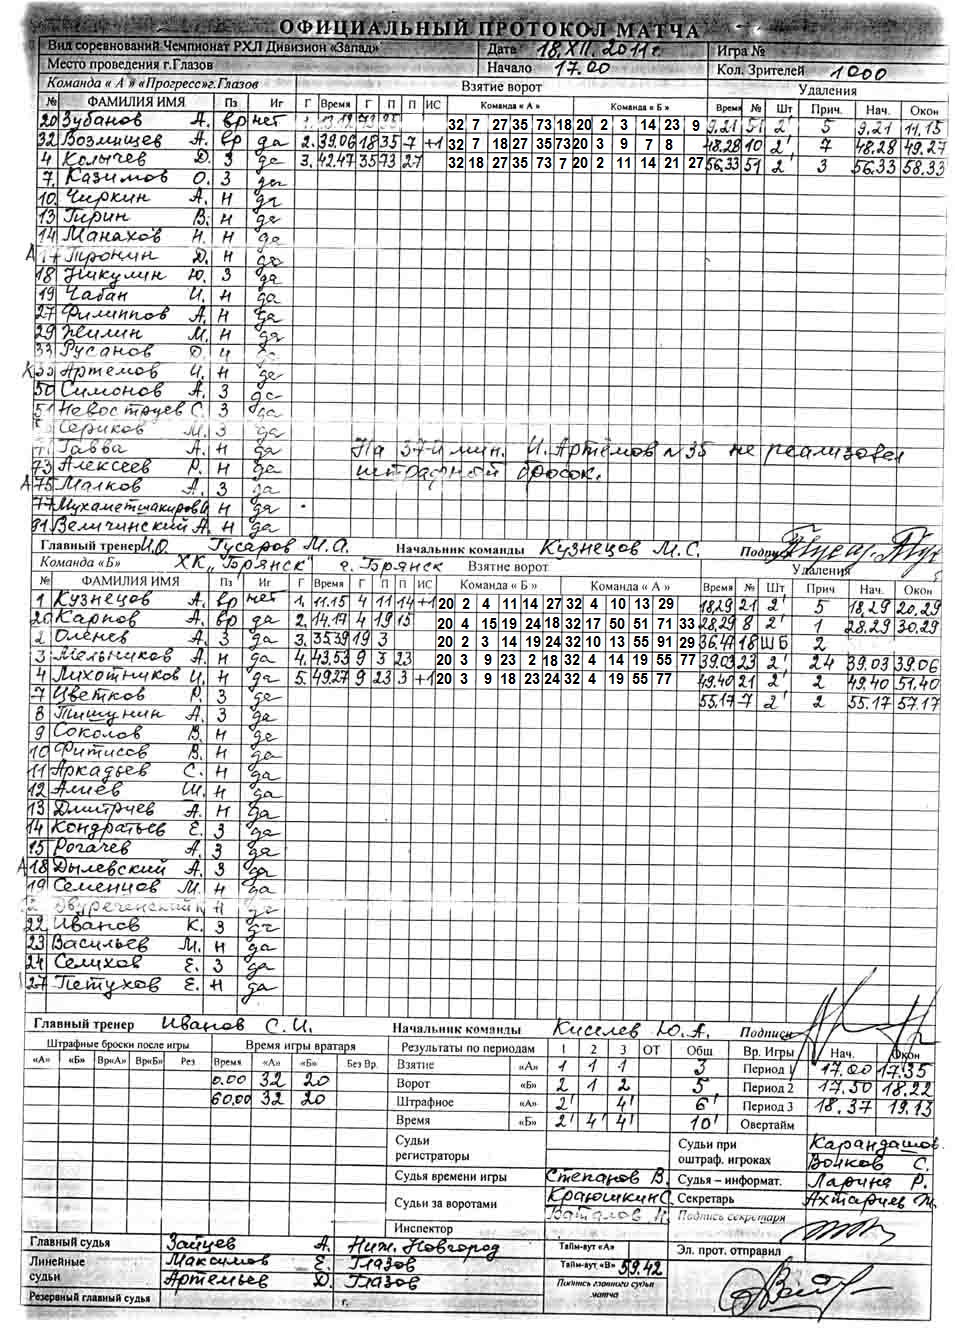 ОФИЦИАЛЬНЫЙ ПРОТОКОЛ МАТЧА
Вид соревнований Чемпионат РХЛ Дивизион «Запад» Дата 18.XII.2011г. Игра №
Место проведения г.Глазов Начало 17.00 Кол. Зрителей 1000
Команда « А » «Прогресс»г.Глазов Взятие ворот Удаления
№ ФАМИЛИЯ ИМЯ Пз Иг Г Время Г П П ИС Команда « А » Команда « Б » Время № Шт Прич. Нач. Окон
20 Зубанов А. вр нет 1. 32 7 27 35 73 18 20 2 3 14 23 9 9,21 51 2' 5 9,21 11,15
32 Возмищев А. вр да 2. 39.06 18 35 7 +1 32 7 18 27 35 73 20 3 9 7 8 48.28 10 2' 7 48,28 49.27
4 Колычев Д. З да 3. 42.47 35 73 27 32 18 27 35 73 7 20 2 11 14 21 27 56.33 51 2' 3 56.33 58.33
7. Казимов О. З да
10. Чиркин А. Н да
13 Гирин В. Н да
14 Манахов Н. Н да
А 17 Тронин Д. Н да
18 Никулин Ю. З да
19 Чабан И. Н да
27 Филиппов А. Н да
29 Жилин М. Н да
33 Русанов Д.
К 35 Артёмов И. Н да
50 Симонов А. З да
51 Невоструев С. З да
Сериков М. З да
Гавва А. Н да На 37-й мин. И. Артёмов №35 не реализовал
73 Алексеев Р. Н да штрафный бросок.
А 75 Малков А. З да
77 Мухаметшакиров И. Н да
91 Величинский А. Н да
Главный тренер И.О Гусаров М.А. Начальник команды Кузнецов М.С. Подпись
Команда «Б» ХК „Брянск“ г. Брянск Взятие ворот Удаления
№ ФАМИЛИЯ ИМЯ Пз Иг Г Время Г П П ИС Команда « Б » Команда « А » Время № Шт Прич Нач. Окон
1 Кузнецов А. вр нет 1. 11.15 4 11 14 +1 20 2 4 11 14 27 32 4 10 13 29 18.29 21 2' 5 18,29 20,29
20 Карпов А. вр да 2. 14.17 4 19 15 20 4 15 19 24 18 32 17 50 51 71 33 28.29 8 2' 1 28.29 30.29
2 Оленев А. З да 3. 35.39 19 3 20 2 3 14 19 24 32 10 13 55 91 29 36.47 18 ШБ 2
3 Мельников А. Н да 4. 43.53 9 3 23 20 3 9 23 2 18 32 4 14 19 55 77 39.03 23 2' 24 39.03 39.06
4 Лихотников И. Н да 5. 49.27 9 23 3 +1 20 3 9 18 23 24 32 4 19 55 77 49.40 21 2' 2 49.40 51.40
7 Цветков Р. З да 55.17 7 2' 2 55.17 57.17
8 Пишунин А. З да
9 Соколов В. Н да
10 Фитисов В. Н да
11 Аркадьев С. Н да
12 Алиев Ш. Н да
13 Дмитриев А. Н да
14 Кондратьев Е. З да
15 Рогачёв А. З да
А 18 Дылевский А. З да
19 Семенцов М. Н да
Двуреченский Н да
22 Иванов К. З да
23 Васильев М. Н да
24 Селихов Е. З да
27 Петухов Е. Н да
Главный тренер Иванов С.И. Начальник команды Киселев Ю.А. Подпись
Штрафные броски после игры Время игры вратаря Результаты по периодам 1 2 3 ОТ Общ Вр. Игры Нач. Окон
«А» «Б» Вр«А» Вр«Б» Рез Время «А» «Б» Без Вр. Взятие «А» 1 1 1 3 Период 1 17.00 17.35
0.00 32 20 Ворот «Б» 2 1 2 5 Период 2 17.50 18.22
60.00 32 20 Штрафное «А» 2' 4' 6' Период 3 18.37 19.13
Время «Б» 2' 4' 4' 10' Овертайм
Судьи регистраторы Судьи при оштраф. игроках Карандашов Войков С.
Судья времени игры Степанов В. Судья – информат. Ларина Р.
Судьи за воротами Краюшкин С. Секретарь Ахтариев М.
Ваталов Н. Подпись секретаря
Инспектор
Главный судья Зайцев А. Ниж. Новгород Тайм-аут «А» Эл. прот. отправил
Линейные Максимов Е. Глазов Тайм-аут «В» 59.42
судьи Артемьев Д. Глазов Подпись главного судьи матча
Резервный главный судья г.